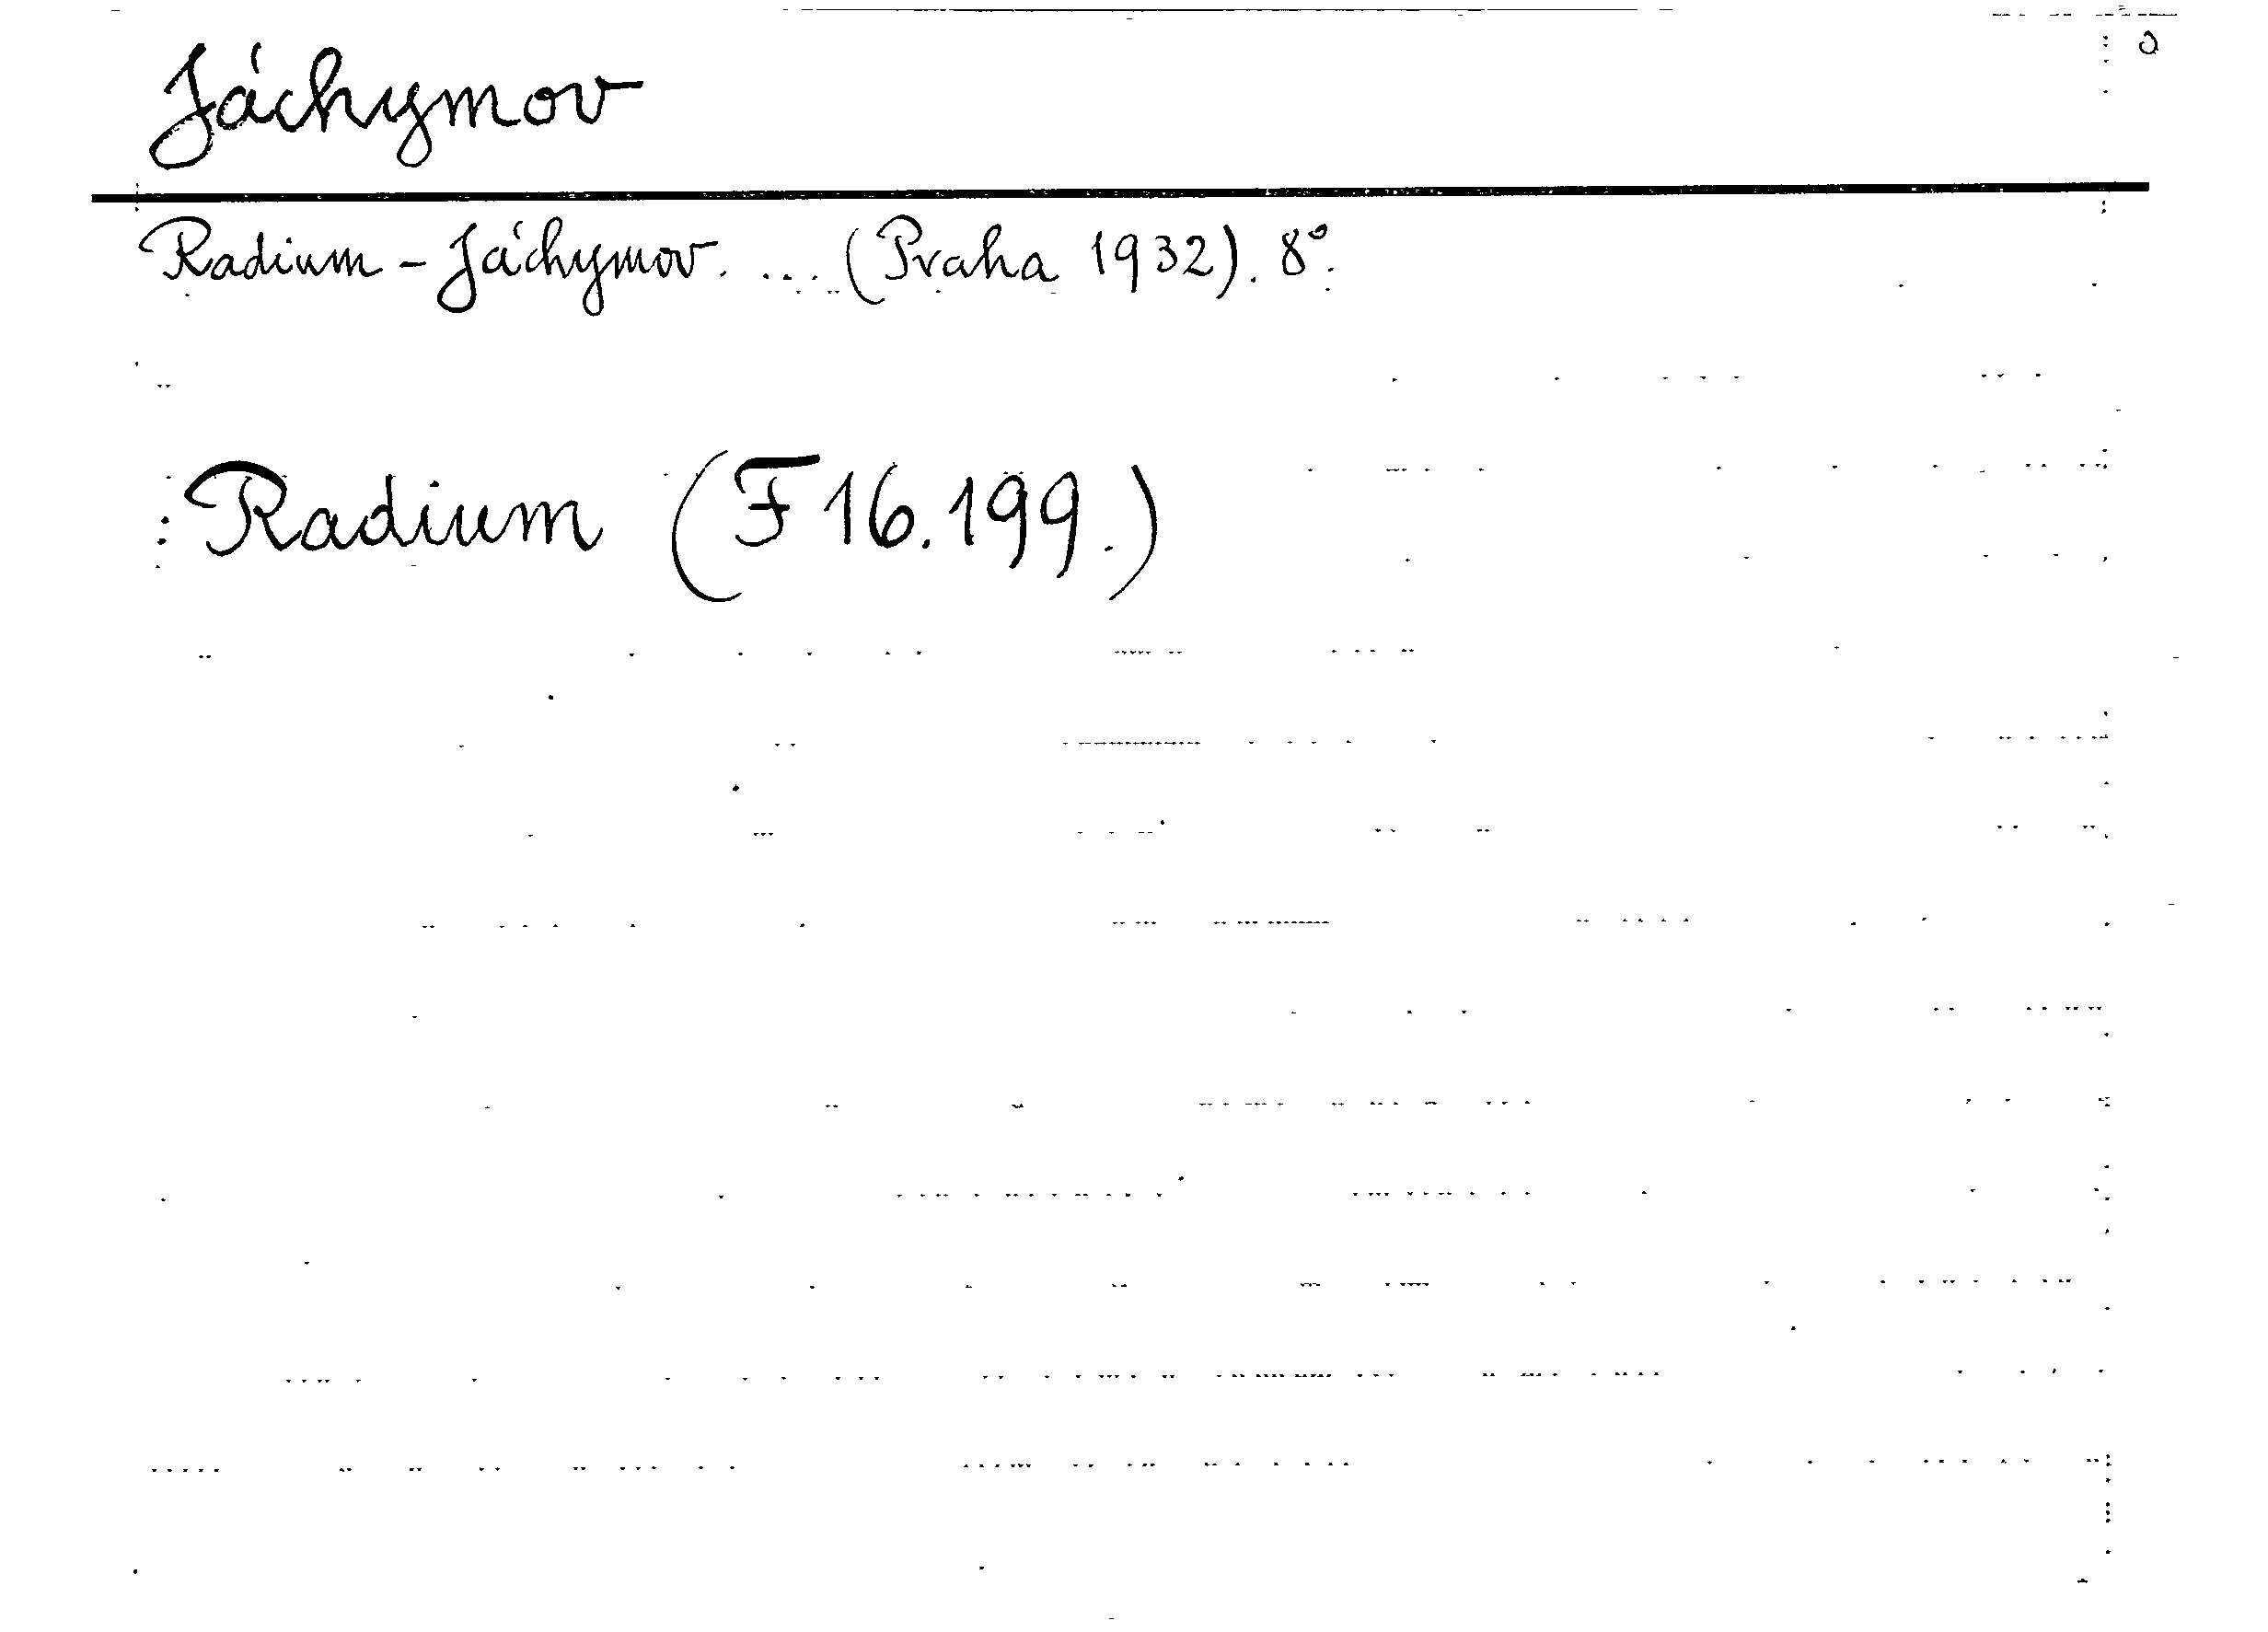 Jáchymov
Radium - Jáchymov. ... (Praha 1932). 8°.
Radium (F 16.199.)